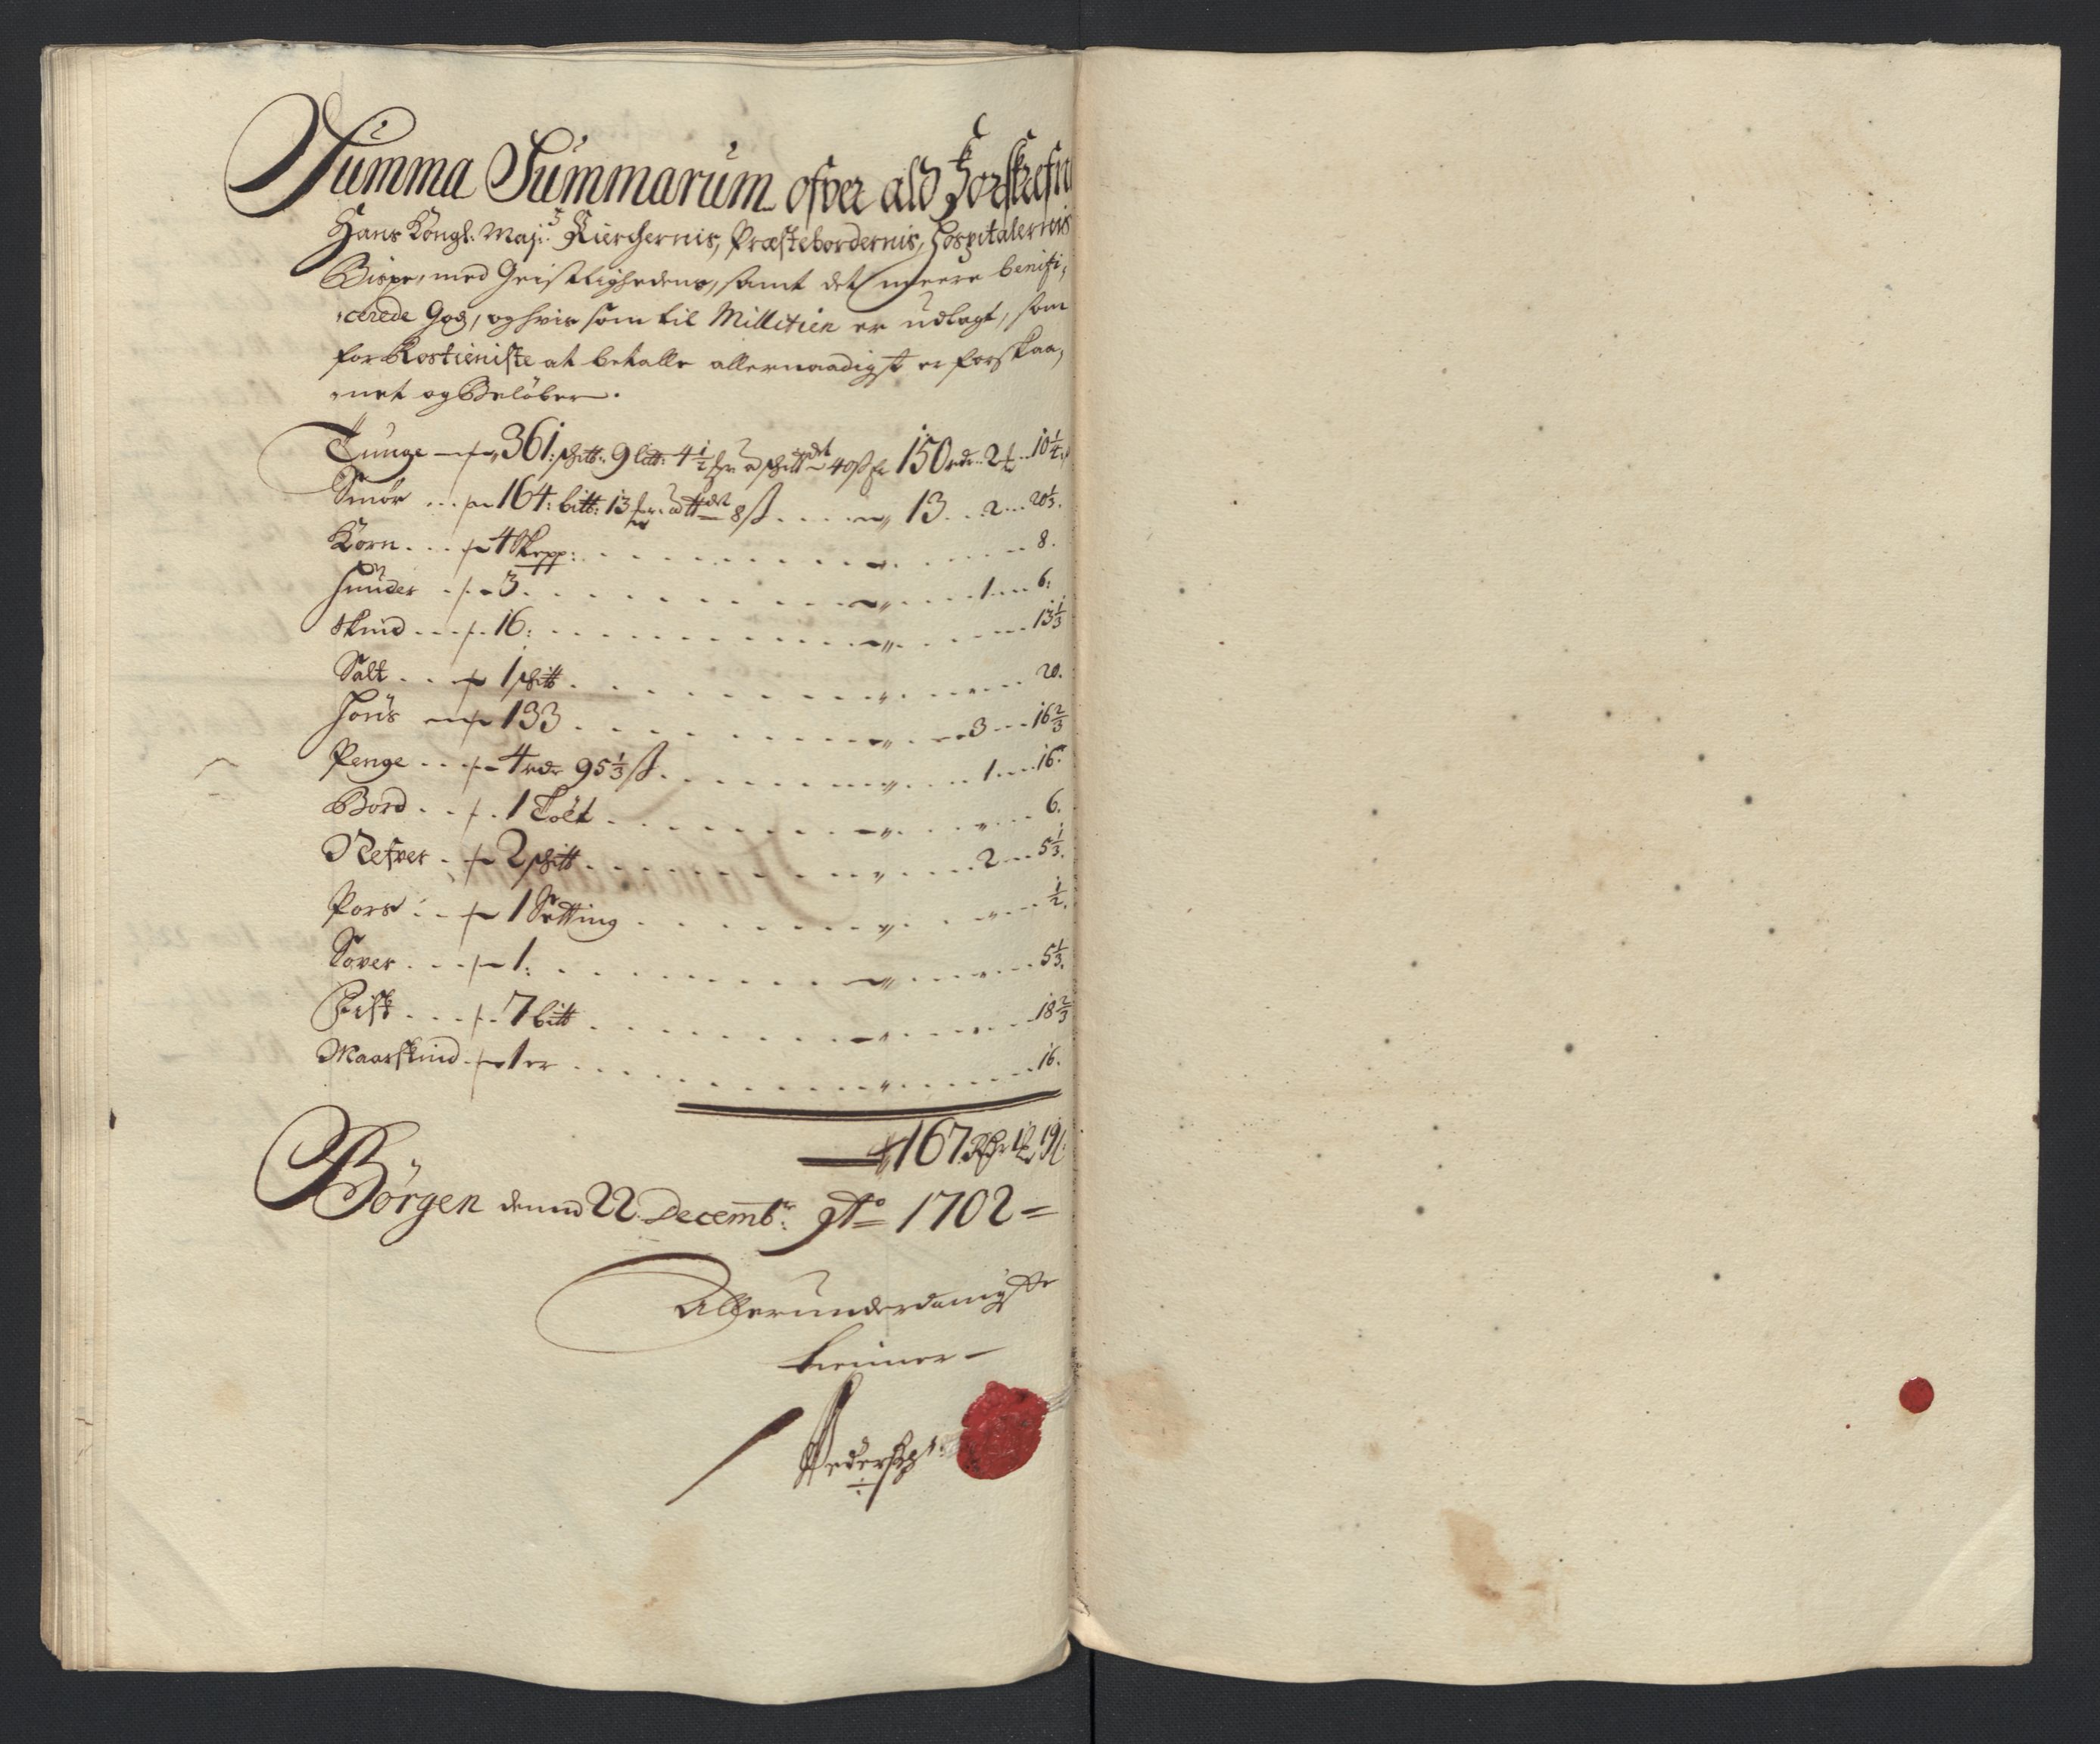 Summa Summarum ofver ald Forskrefne
Hans Kongl: Maj:s Kierchernis, Præstebordernis, Hospitalernis
Bispe, med Geistlighedens, samt det meere benifi,
,cerede Gods, og hvis som til Militien er udlagt, som
for Rostieniste at betalle allernaadigst er forskaa,
,net og Beløber.
Tunge 361: 9 4½ 40 150 rdr 2 10¼
Smør 164: 13 8 ß 13 2 20⅓.
Korn 4 Skepp: 8.
Huuder 3. 1 6:
Skind 16: 13⅓
Salt 1 20.
Hous 133 3 16⅔
Penge 4 rdr 95⅓ ß. 1 16.
Bord 1 Tolt 6.
Nefver 2 2 5⅓.
Pors 1 Setting ½.
Sover 1: 5⅓.
Fisk 7 18⅔
Maarskind 1 er 16.
167 1 19
Børgen dennd 22 Decembr: Ao 1702
Allerunderdanigste
tienner
Peder